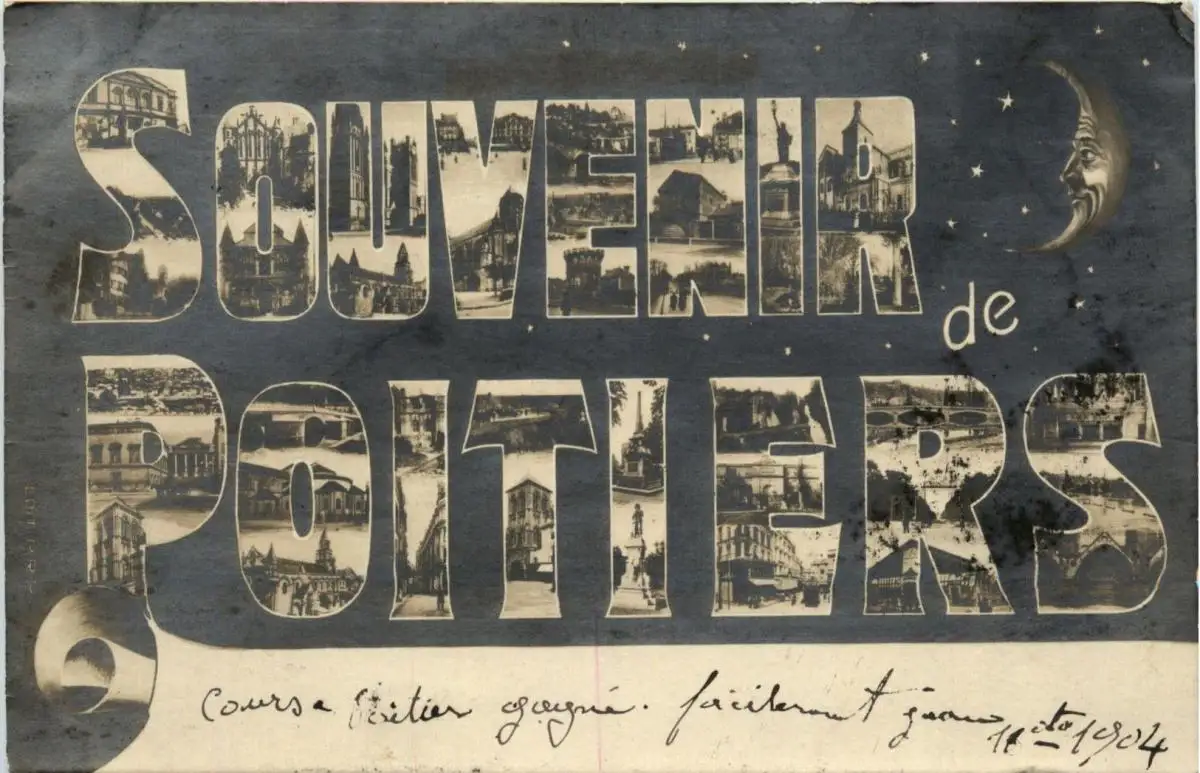 SOUVENIR
de
POITIERS
Course Poitier gagné. facilement
1904